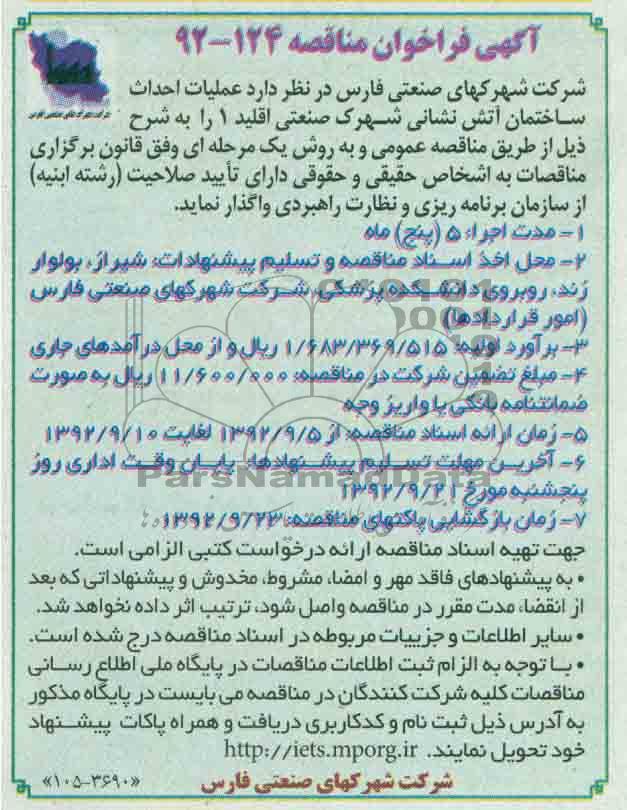 آگهی فراخوان مناقصه ۱۲۴-۹۲
شرکت شهرکهای صنعتی فارس
شرکت شهرکهای صنعتی فارس در نظر دارد عملیات احداث
ساختمان آتش نشانی شهرک صنعتی اقلید ۱ را به شرح
ذیل از طریق مناقصه عمومی و به روش یک مرحله ای وفق قانون برگزاری
مناقصات به اشخاص حقیقی و حقوقی دارای تأیید صلاحیت (رشته ابنیه)
از سازمان برنامه ریزی و نظارت راهبردی واگذار نماید.
۱- مدت اجرا: ۵ (پنج) ماه
۲- محل اخذ اسناد مناقصه و تسلیم پیشنهادات: شیراز، بولوار
زند، روبروی دانشکده پزشکی، شرکت شهرکهای صنعتی فارس
(امور قراردادها)
۳- برآورد اولیه: ۱/۶۸۳/۳۶۹/۵۱۵ ریال و از محل درآمدهای جاری
۴- مبلغ تضمین شرکت در مناقصه: ۱۱/۶۰۰/۰۰۰ ریال به صورت
ضمانتنامه بانکی یا واریز وجه
۵- زمان ارائه اسناد مناقصه: از ۱۳۹۲/۹/۵ لغایت ۱۳۹۲/۹/۱۰
۶- آخرین مهلت تسلیم پیشنهادها: پایان وقت اداری روز
پنجشنبه مورخ ۱۳۹۲/۹/۲۱
ParsNamadData
۷- زمان بازگشایی پاکتهای مناقصه: ۱۳۹۲/۹/۲۳
جهت تهیه اسناد مناقصه ارائه درخواست کتبی الزامی است.
• به پیشنهادهای فاقد مهر و امضا، مشروط، مخدوش و پیشنهاداتی که بعد
از انقضاء مدت مقرر در مناقصه واصل شود، ترتیب اثر داده نخواهد شد.
• سایر اطلاعات و جزییات مربوطه در اسناد مناقصه درج شده است.
• با توجه به الزام ثبت اطلاعات مناقصات در پایگاه ملی اطلاع رسانی
مناقصات کلیه شرکت کنندگان در مناقصه می بایست در پایگاه مذکور
به آدرس ذیل ثبت نام و کدکاربری دریافت و همراه پاکات پیشنهاد
خود تحویل نمایند. http://iets.mporg.ir
شرکت شهرکهای صنعتی فارس
«۱۰۵-۳۶۹۰»